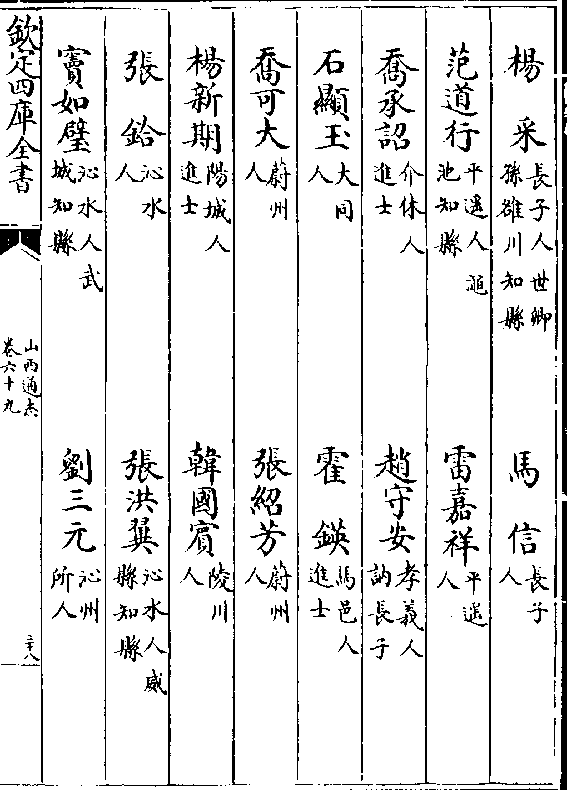 楊采 長子人世卿孫雒川知縣 馬信 長子人
范道行 平遥人澠池知縣 雷嘉祥 平遥人
喬承詔 介休人進士 趙守安 孝義人訥長子
石顯玉 大同人 霍鍈 馬邑人進士
喬可大 蔚州人 張紹芳 蔚州人
楊新期 陽城人進士 韓國賓 陵川人
張鉿 沁水人 張洪翼 沁水人威縣知縣
竇如璧 沁水人武城知縣 劉三元 沁州所人
欽定四庫全書 山西通志卷六十九 三十八